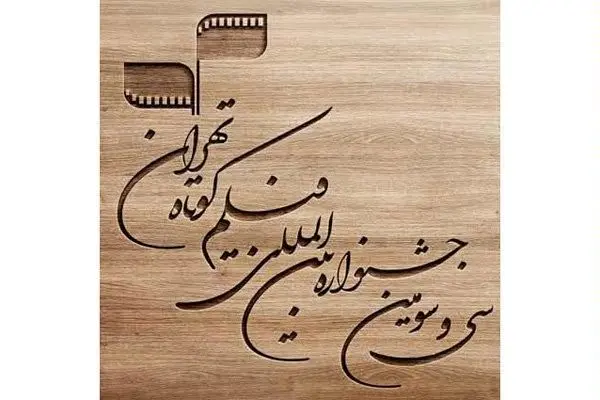 سی و سومین
جشنواره بین المللی
فیلم کوتاه
تهران